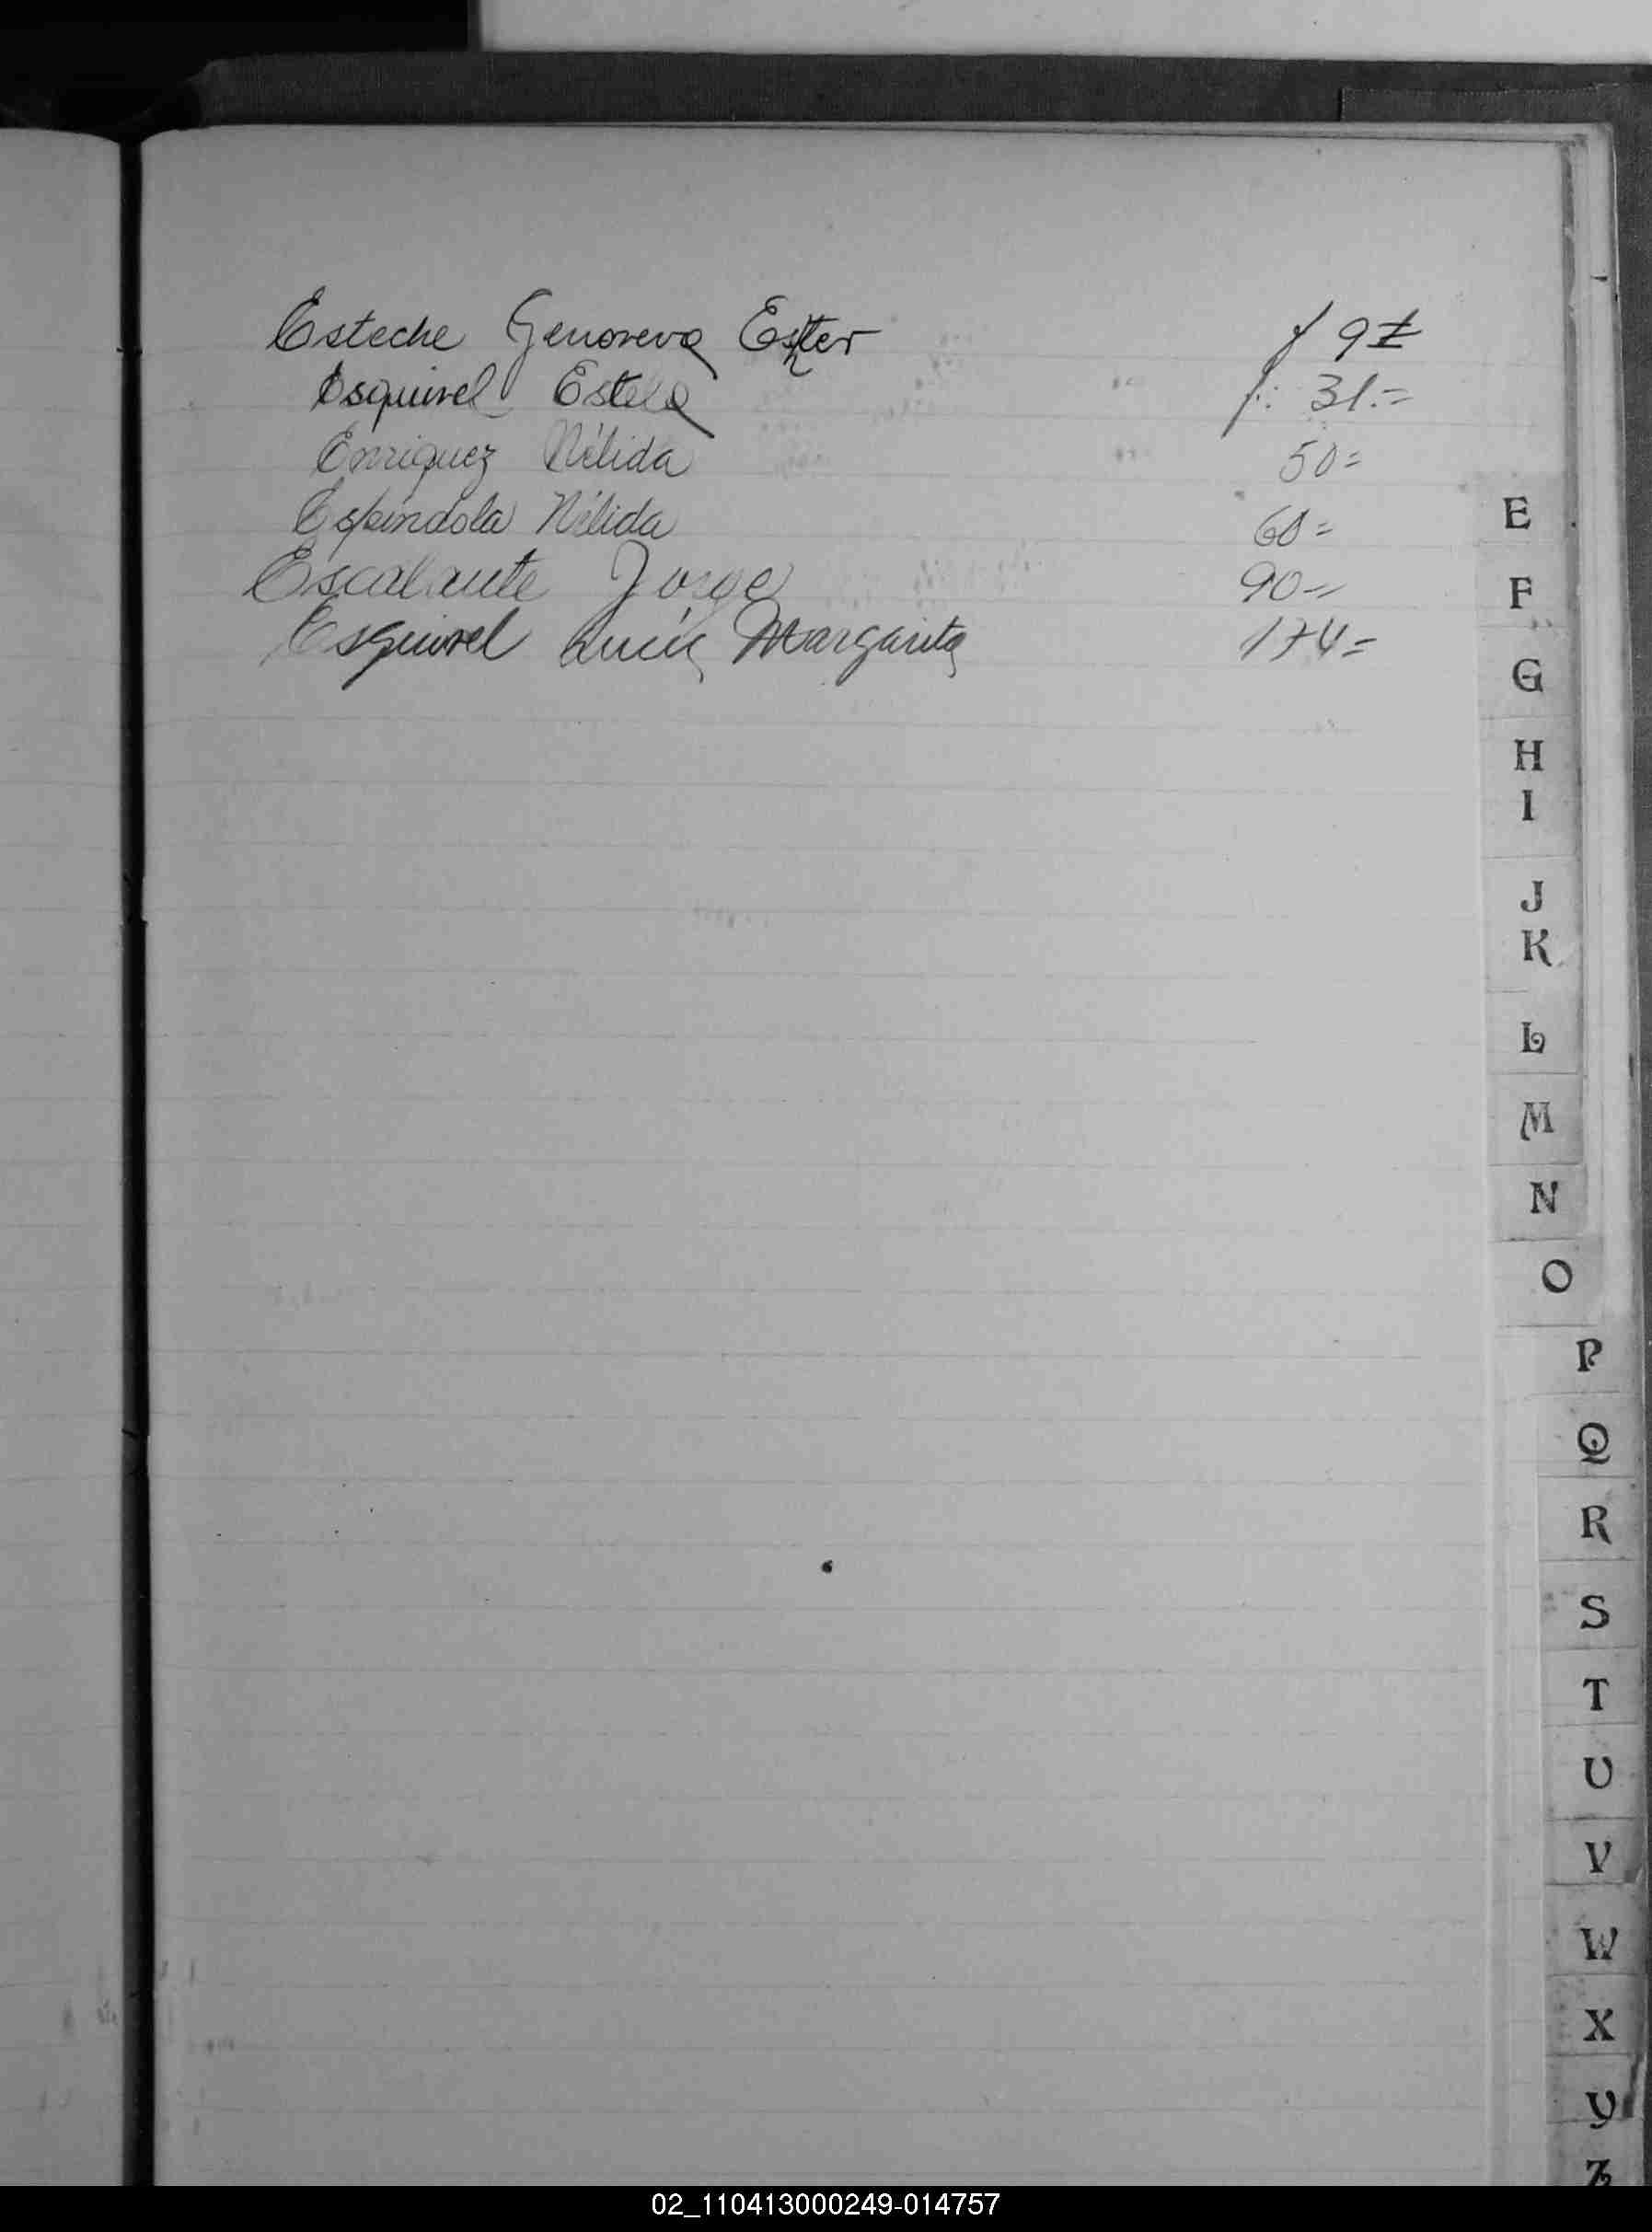 Esteche Genoveva Ester f 9=
Esquivel Estela f: 31.=
Enriquez Nélida 50=
Espíndola Nélida 60=
Escalante Jorge 90=
Esquivel Lucía Margarita 174=
E
F
G
H
I
J
K
L
M
N
O
P
Q
R
S
T
U
V
W
X
Y
Z
02_110413000249-014757